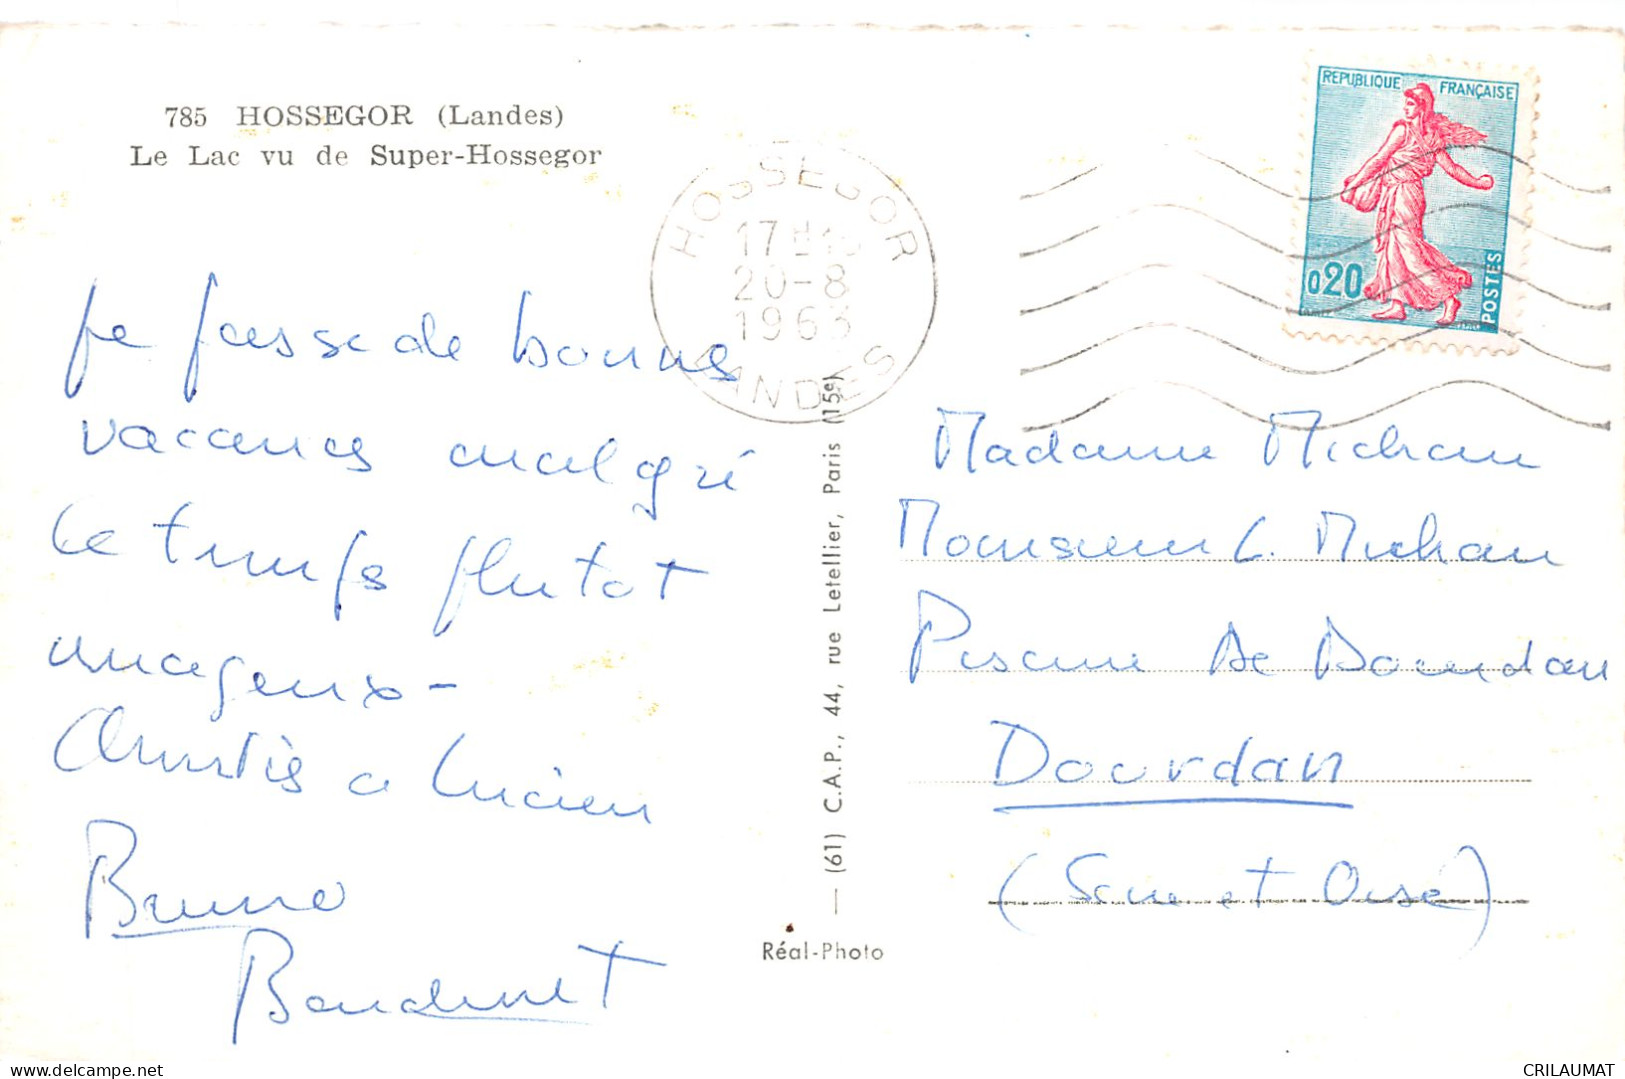 785 HOSSEGOR (Landes)
Le Lac vu de Super-Hossegor
Je passe de bonnes
vacances malgré
le temps plutot
nuageux -
Amitiés a Lucien
Bruno
HOSSEGOR
17H
20-8
1963
LANDES
REPUBLIQUE FRANÇAISE
0,20
POSTES
— (61) C.A.P., 44, rue Letellier, Paris (15e)
Réal-Photo
Madame Michau
Monsieur L. Michau
Piscine de Dourdan
Dourdan
(Seine et Oise)
delcampe.net
CRILAUMAT